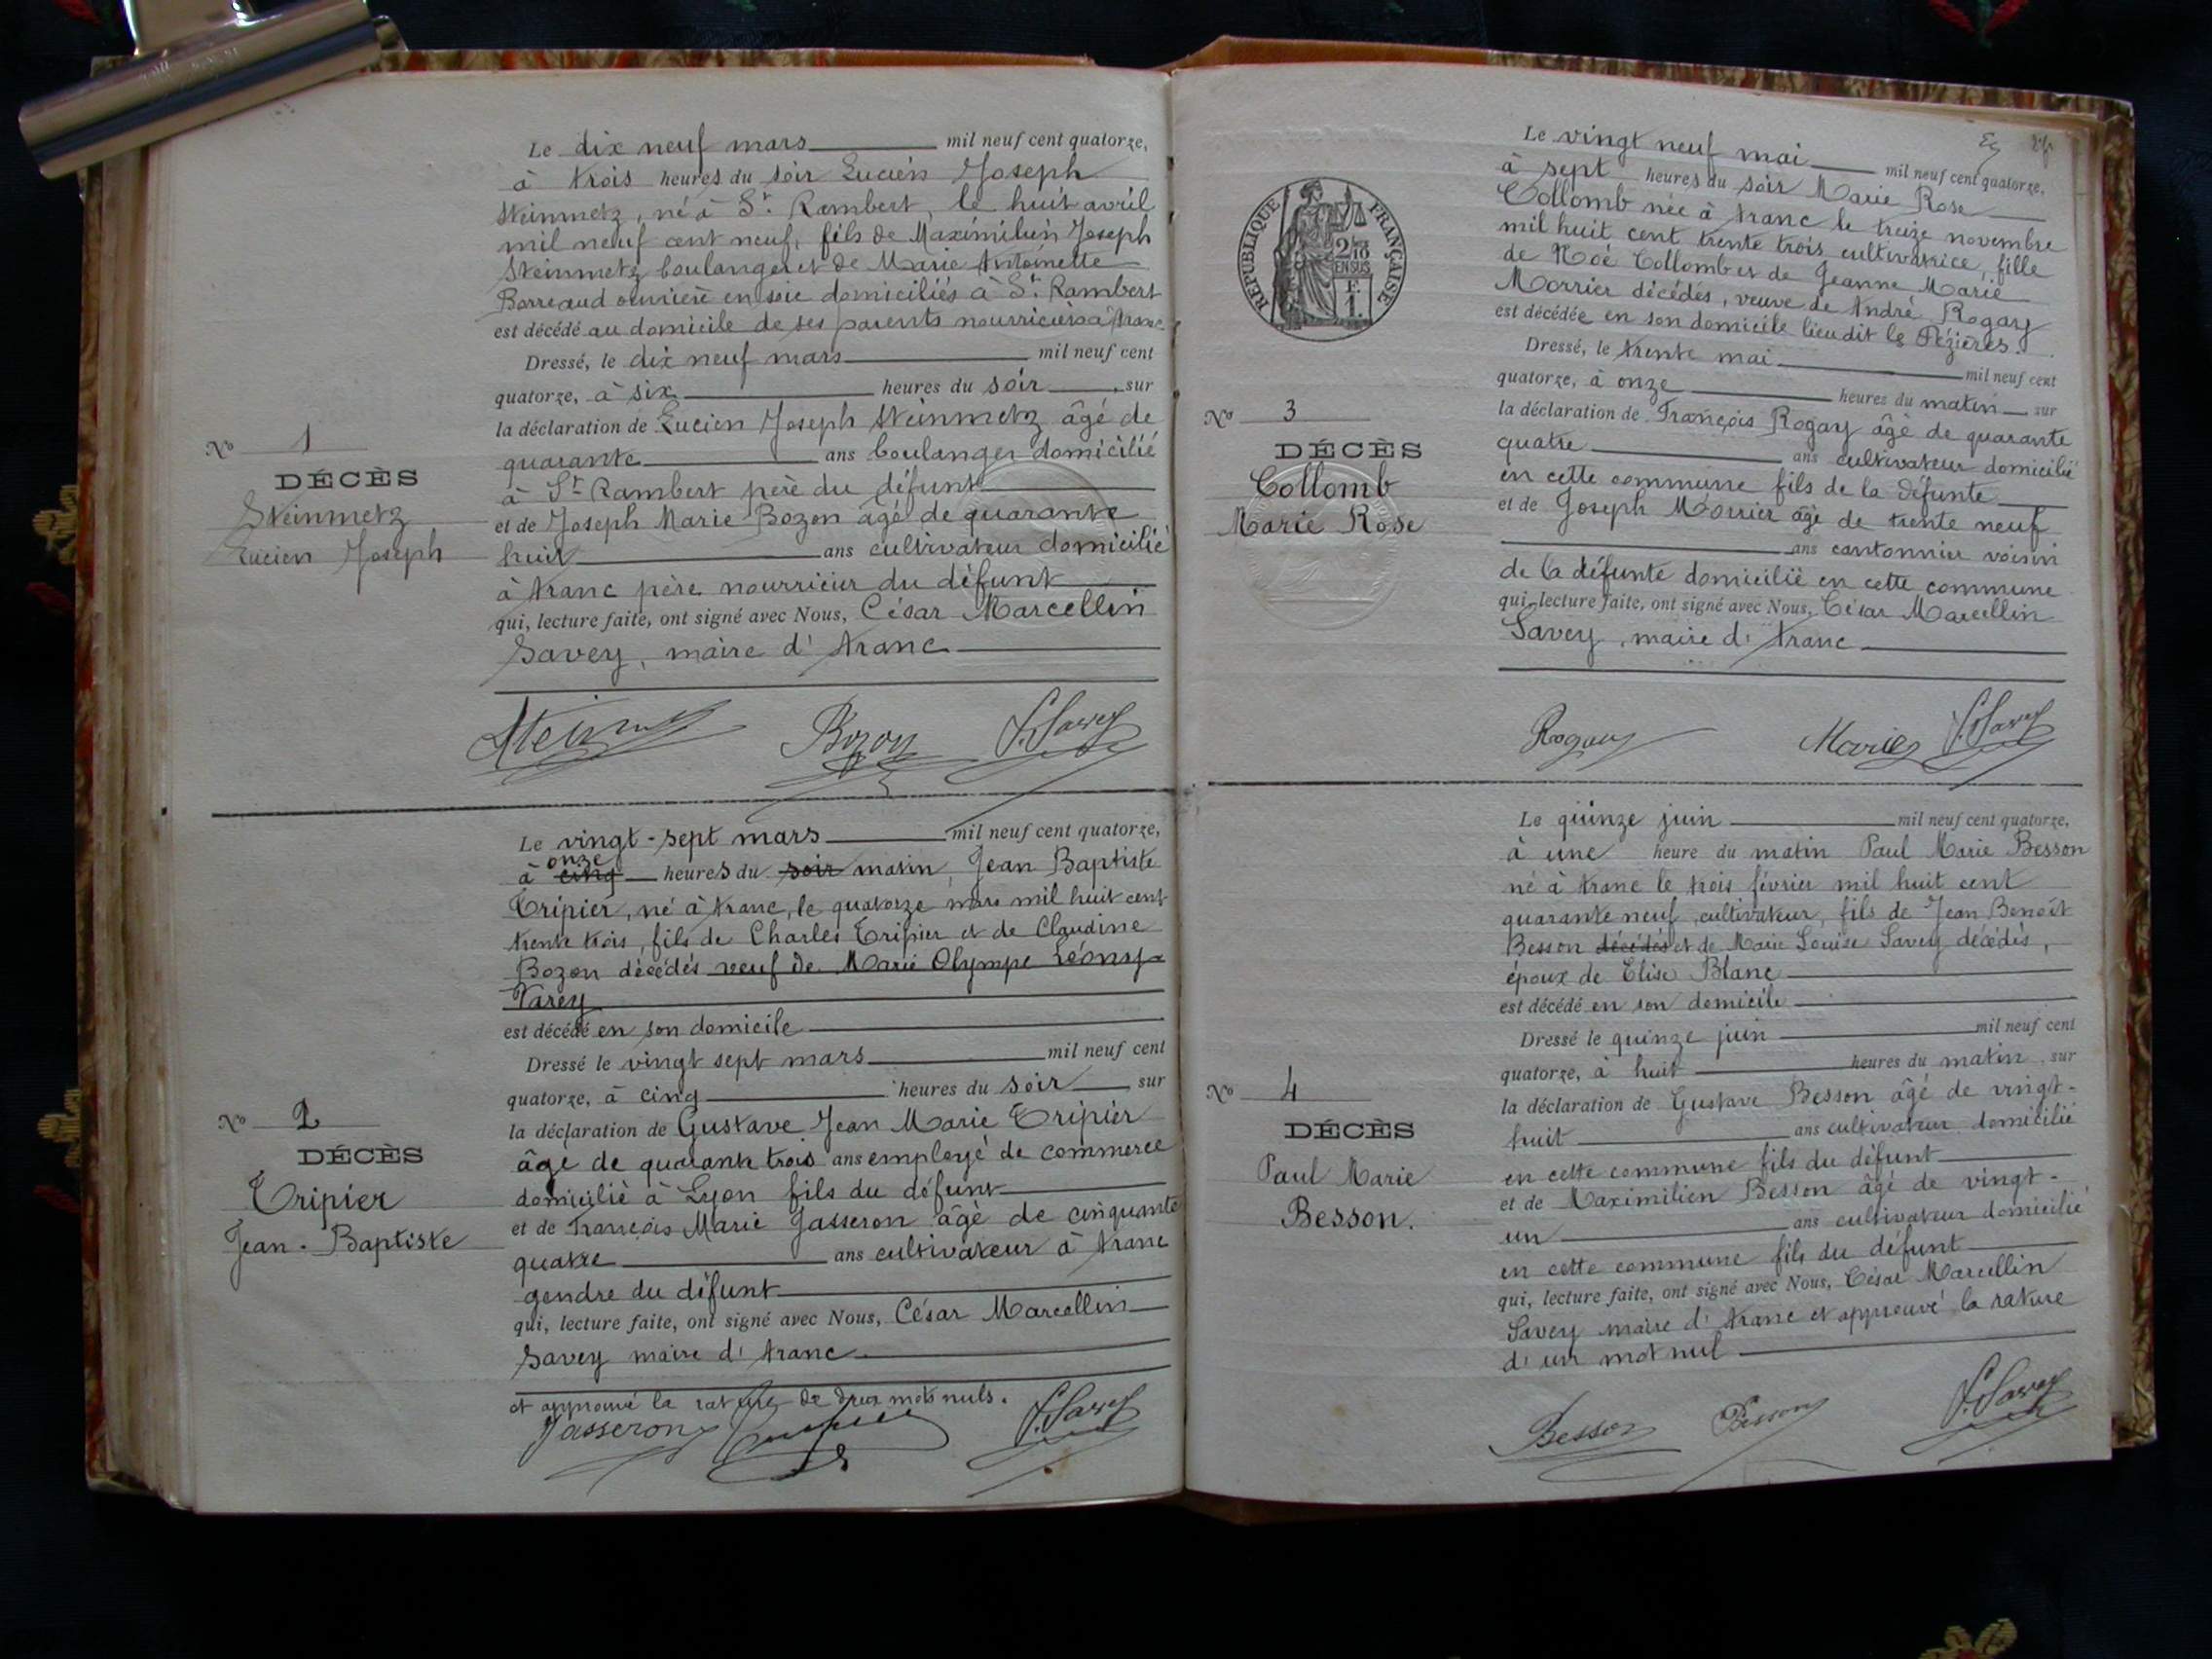 Le dix neuf mars mil neuf cent quatorze,
à trois heures du soir Lucien Joseph
Steinmetz, né à St. Rambert, le huit avril
mil neuf cent neuf, fils de Maximilien Joseph
Steinmetz boulanger et de Marie Antoinette
Borreaud ouvrière en soie domiciliés à St. Rambert
est décédé au domicile de ses parents nourriciers à Aranc
Dressé, le dix neuf mars mil neuf cent
quatorze, à six heures du soir, sur
la déclaration de Lucien Joseph Steinmetz âgé de
quarante ans boulanger domicilié
à St Rambert père du défunt
et de Joseph Marie Bozon âgé de quarante
huit ans cultivateur domicilié
à Aranc père nourricier du défunt
qui, lecture faite, ont signé avec Nous, César Marcellin
Savey, maire d'Aranc
No 1
DÉCÈS
Steinmetz
Lucien Joseph
Bozon Savey
Le vingt-sept mars mil neuf cent quatorze,
onze
à cinq heures du soir matin, Jean Baptiste
Tripier, né à Aranc, le quatorze mars mil huit cent
trente trois, fils de Charles Tripier et de Claudine
Bozon décédés veuf de Marie Olympe Léony
Varey
est décédé en son domicile
Dressé le vingt sept mars mil neuf cent
quatorze, à cinq heures du soir sur
la déclaration de Gustave Jean Marie Tripier
âge de quarante trois ans employé de commerce
domicilié à Lyon fils du défunt
et de François Marie Jasseron âgé de cinquante
quatre ans cultivateur à Aranc
gendre du défunt
qui, lecture faite, ont signé avec Nous, César Marcellin
Savey maire d'Aranc
et approuvé la rature de deux mots nuls.
No 2
DÉCÈS
Tripier
Jean-Baptiste
Jasseron Savey
RÉPUBLIQUE FRANÇAISE
2/10
EN SUS
F.
1.
Le vingt neuf mai mil neuf cent quatorze,
à sept heures du soir Marie Rose
Collomb née à Aranc le treize novembre
mil huit cent trente trois cultivatrice, fille
de Noé Collomb et de Jeanne Marie
Morrier décédés, veuve de André Rogay
est décédée en son domicile lieu dit les Pézières.
Dressé, le trente mai mil neuf cent
quatorze, à onze heures du matin sur
la déclaration de François Rogay âgé de quarante
quatre ans cultivateur domicilié
en cette commune fils de la défunte
et de Joseph Morrier âgé de trente neuf
ans cantonnier voisin
de la défunte domicilié en cette commune
qui, lecture faite, ont signé avec Nous, César Marcellin
Savey, maire d'Aranc
No 3
DÉCÈS
Collomb
Marie Rose
Rogay Savey
Le quinze juin mil neuf cent quatorze,
à une heure du matin Paul Marie Besson
né à Aranc le trois février mil huit cent
quarante neuf, cultivateur, fils de Jean Benoît
Besson décédés et de Marie Louise Savey décédés,
époux de Elise Blanc
est décédé en son domicile
Dressé le quinze juin mil neuf cent
quatorze, à huit heures du matin, sur
la déclaration de Gustave Besson âgé de vingt-
huit ans cultivateur domicilié
en cette commune fils du défunt
et de Maximilien Besson âgé de vingt-
un ans cultivateur domicilié
en cette commune fils du défunt
qui, lecture faite, ont signé avec Nous, César Marcellin
Savey maire d'Aranc et approuvé la rature
d'un mot nul
No 4
DÉCÈS
Paul Marie
Besson.
Besson Besson Savey